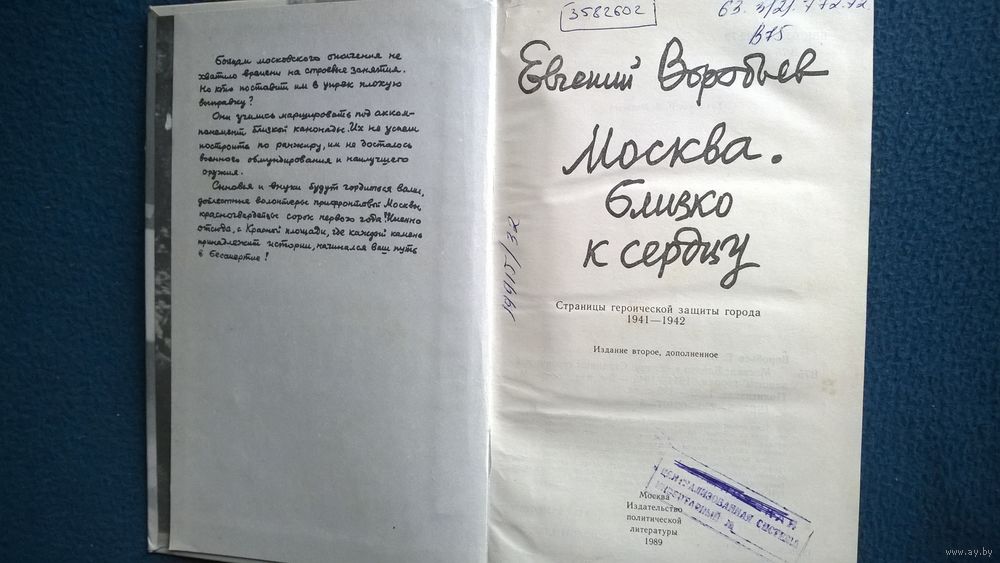 Бойцам московского ополчения не
хватило времени на строевые занятия.
Но кто поставит им в упрек плохую
выправку?
Они учились маршировать под акком-
панемент близкой канонады. Их не успели
построить по ранжиру, им не досталось
военного обмундирования и наилучшего
оружия.
Сыновья и внуки будут гордиться вами,
доблестные волонтеры прифронтовой Москвы,
красногвардейцы сорок первого года! Именно
отсюда, с Красной площади, где каждый камень
принадлежит истории, начинался ваш путь
в бессмертие!
3582602
63.3(2)
В75
19915/32
Евгений Воробьев
Москва.
Близко
к сердцу
Страницы героической защиты города
1941—1942
Издание второе, дополненное
Москва
Издательство
политической
литературы
1989
ЦЕНТРАЛИЗОВАННАЯ СИСТЕМА
www.ay.by